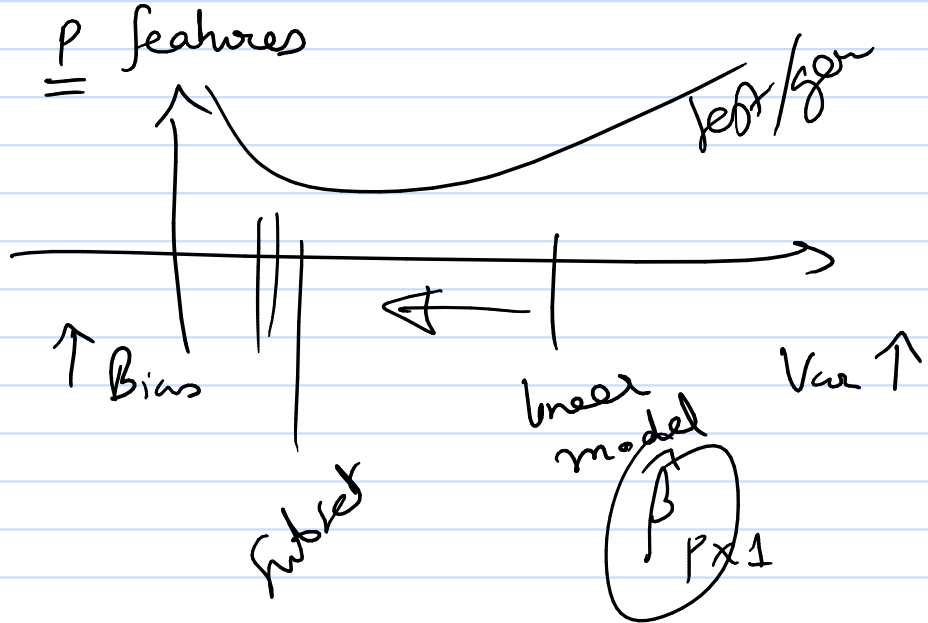 p features
test/gen
↑ Bias
Var ↑
linear
model
subset
β̂
p×1